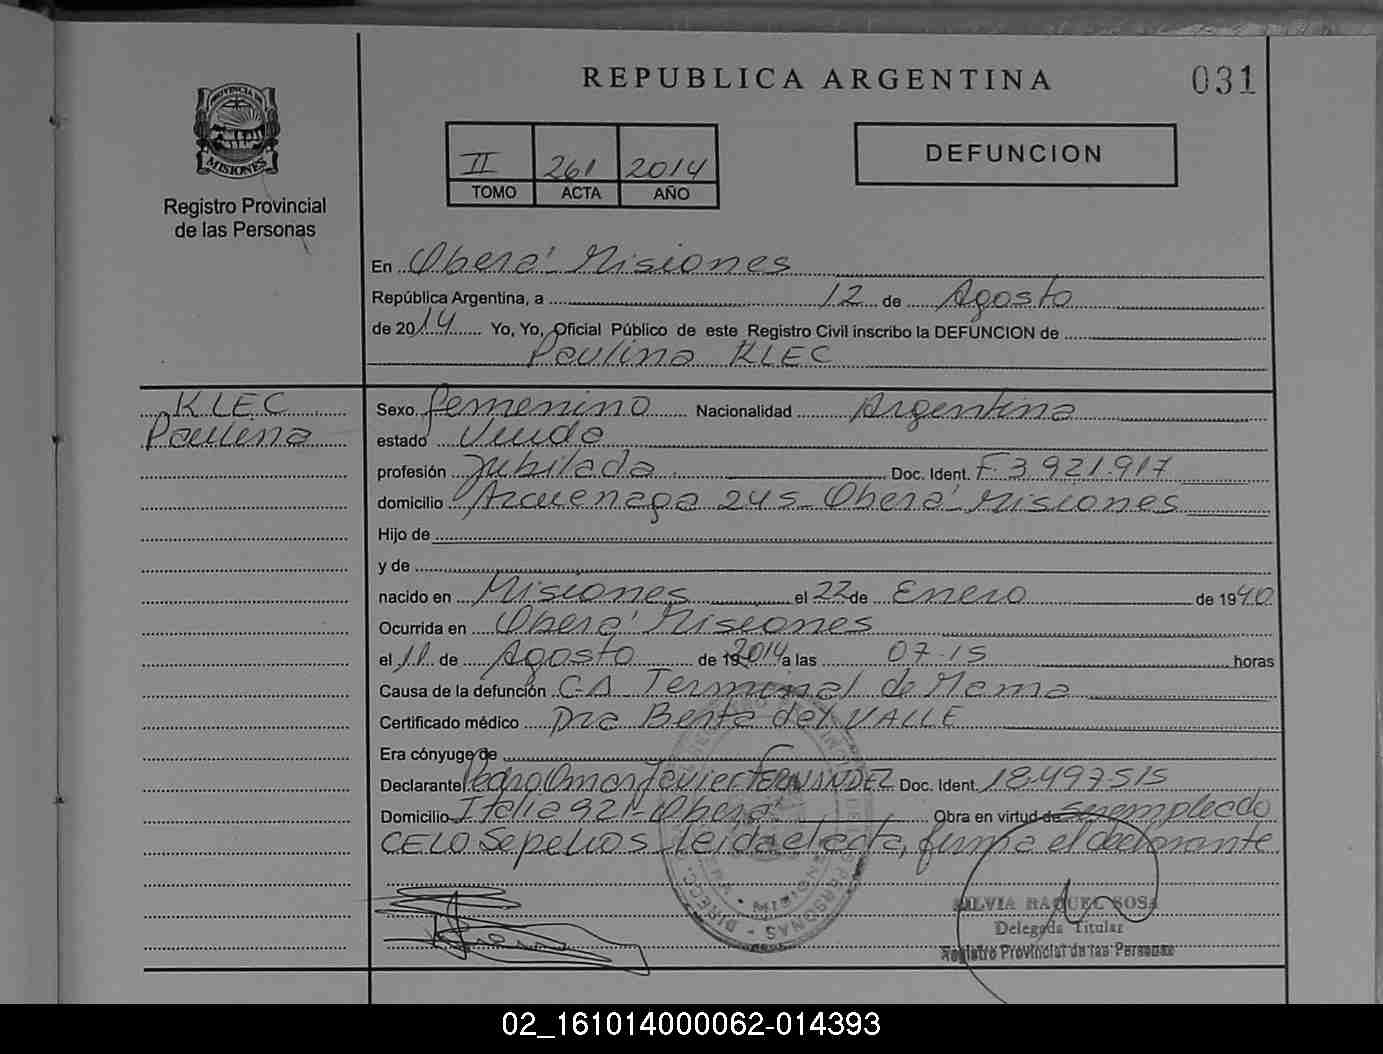 REPUBLICA ARGENTINA
031
PROVINCIA DE
MISIONES
Registro Provincial
de las Personas
II 261 2014
TOMO ACTA AÑO
DEFUNCION
En Oberá - Misiones
República Argentina, a 12 de Agosto
de 2014 Yo, Yo, Oficial Público de este Registro Civil inscribo la DEFUNCION de
Paulina KLEC
KLEC
Paulina
Sexo femenino Nacionalidad Argentina
estado Viuda
profesión Jubilada. Doc. Ident. F 3.921.917
domicilio Azcuenaga 245 - Oberá - Misiones
Hijo de
y de
nacido en Misiones el 22 de Enero de 1940
Ocurrida en Oberá Misiones
el 11 de Agosto de 2014 a las 07-15 horas
Causa de la defunción CA Terminal de Mama
Certificado médico Dra Berta del VALLE
Era cónyuge de
Declarante Pedro Omar Javier FERNANDEZ Doc. Ident. 18.497.515
Domicilio Italia 921 - Oberá Obra en virtud de ser empleado
CELO Sepelios leida el acta, firma el declarante
SILVIA RAQUEL SOSA
Delegada Titular
Registro Provincial de las Personas
02_161014000062-014393